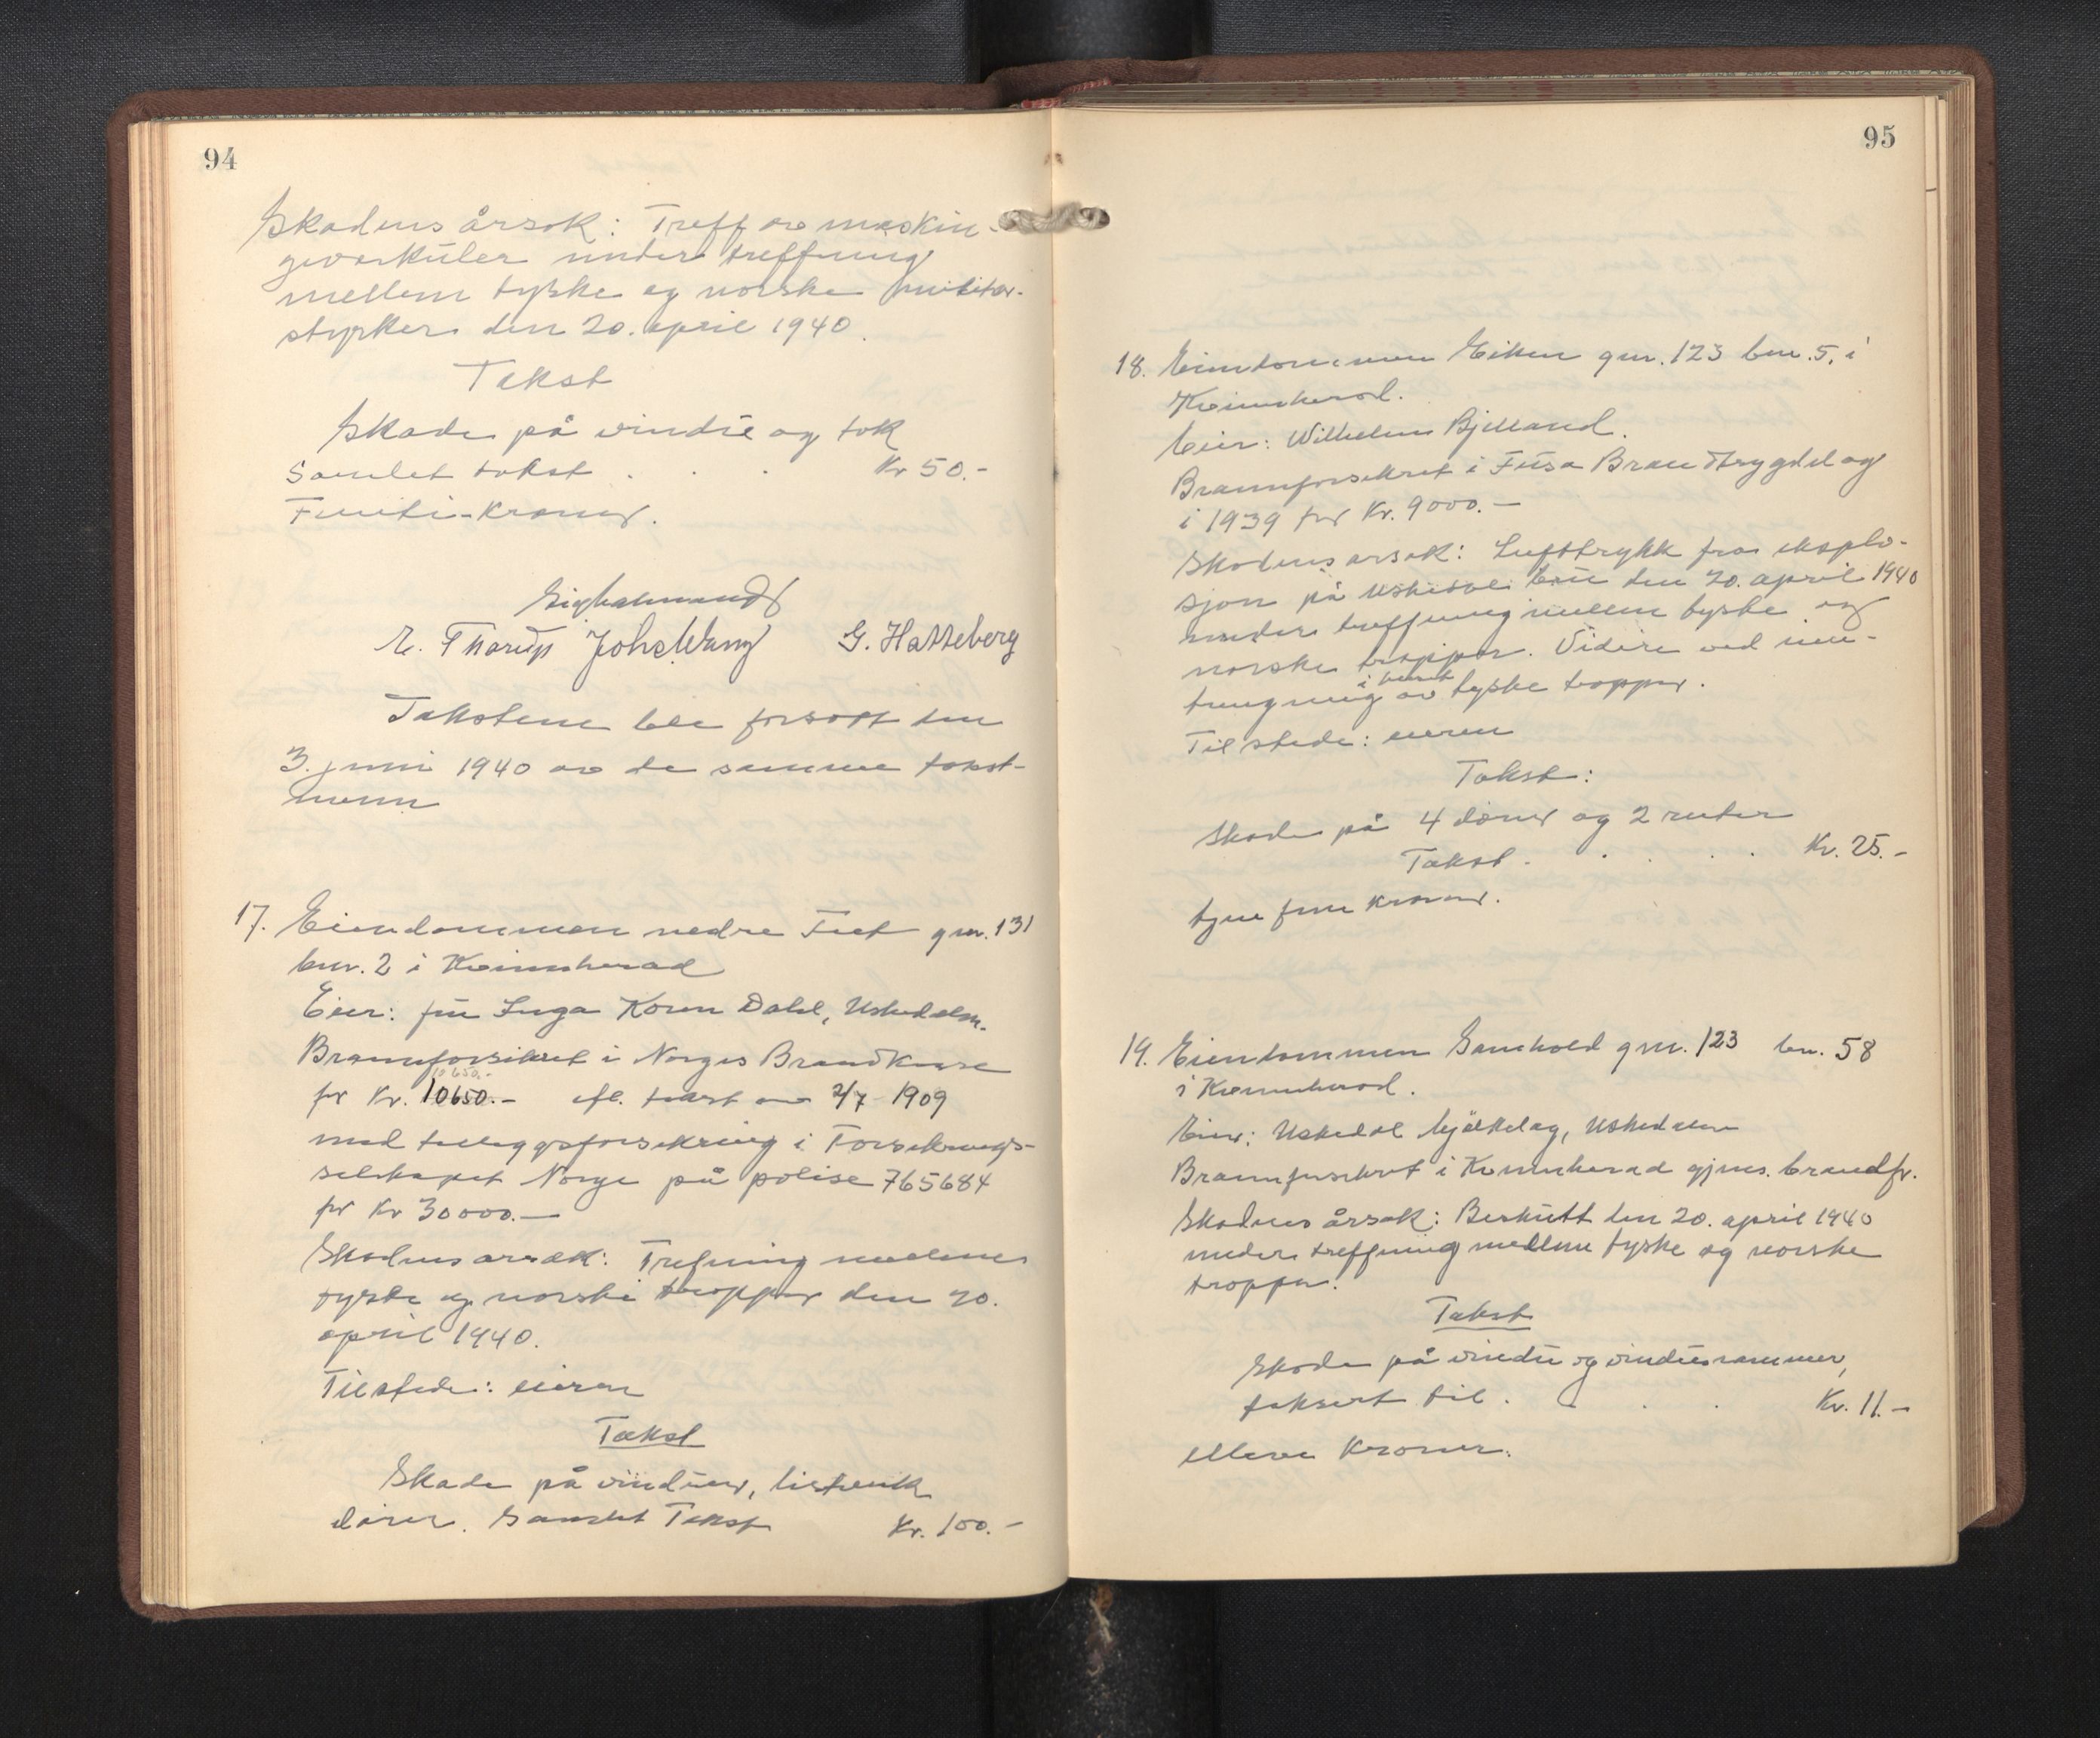 94
Skadens årsak: Treff av maskin-
geværkuler under treffning
mellem tyske og norske militær-
styrker den 20. april 1940.
Takst
Skade på vindu og tak
Samlet takst . . . Kr 50.-
Femti-kroner.
E. Thorup Johs Wang G. Hatteberg
Takstene ble forsatt den
3. juni 1940 av de samme takst-
menn
17. Eiendommen nedre Tuet gnr. 131
bnr. 2 i Kvinnherad
Eier: fru Inga Koren Dahl, Uskedalen.
Brannforsikret i Norges Brandkasse
10650.-
for Kr. 10650.- efl. takst av 2/7 1909
med tilleggsforsikring i Forsikrings-
selskapet Norge på polise 765684
for Kr 30000.-
Skadens arsak: Trefning mellem
tyske og norske tropper den 20.
april 1940.
Tilstede: eieren
Takst
Skade på vinduer, listverk
dører. Samlet Takst Kr. 100.-
95
18. Eiendommen Eiken gnr. 123 bnr. 5. i
Kvinnherad.
Eier: Wilhelm Bjelland.
Brannforsikret i Fusa Brandtrygdelag
i 1939 for Kr. 9000.-
Skadens arsak: Lufttrykk fra eksplo-
sjon på Uskedal kai den 20. april 1940
under treffning mellem tyske og
norske tropper. Videre ved inn-
i huset
trengning av tyske tropper.
Tilstede: eieren
Takst:
Skade på 4 dører og 2 ruter
Takst . . . . Kr. 25.-
tyve fem kroner.
19. Eiendommen Samhold gnr. 123 bn. 58
i Kvinnherad.
Eier: Uskedal Mjølkelag, Uskedalen
Brannforsikret i Kvinnherad gjens. brandfr.
Skadens årsak: Beskutt den 20. april 1940
under treffning mellem tyske og norske
tropper.
Takst
Skade på vindu og vindusrammer,
taksert til . . . . Kr. 11.-
elleve kroner.